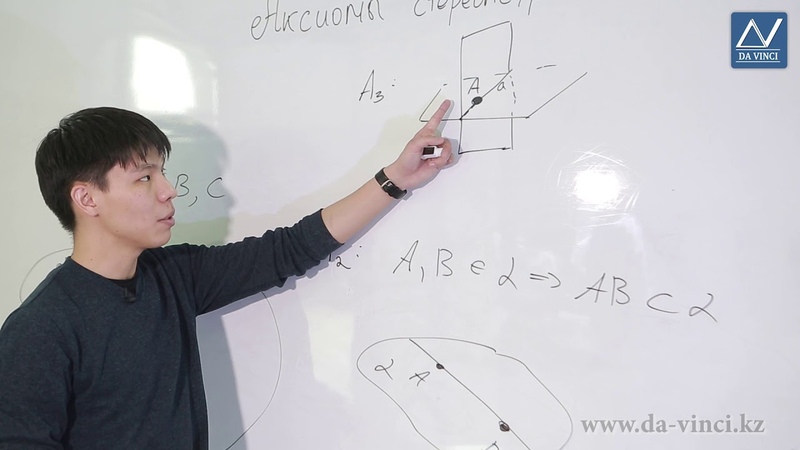 Аксиомы стереомет
DA VINCI
A₃:
A a
B, C
A₂: A, B ∈ α => AB ⊂ α
α A
B
www.da-vinci.kz